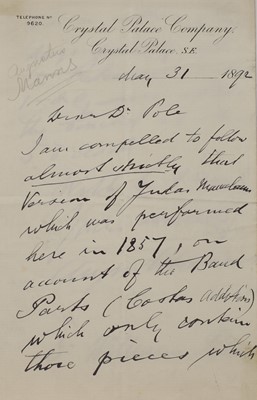 TELEPHONE Nº
9620.
Crystal Palace Company,
Crystal Palace. S.E.
Augustus
Manns
May 31 1892
Dear Dr Pole
I am compelled to follow
almost strictly that
Version of Judas Maccabaeus
which was performed
here in 1857, on
account of the Band
Parts (Costas addition)
which only contain
those pieces which